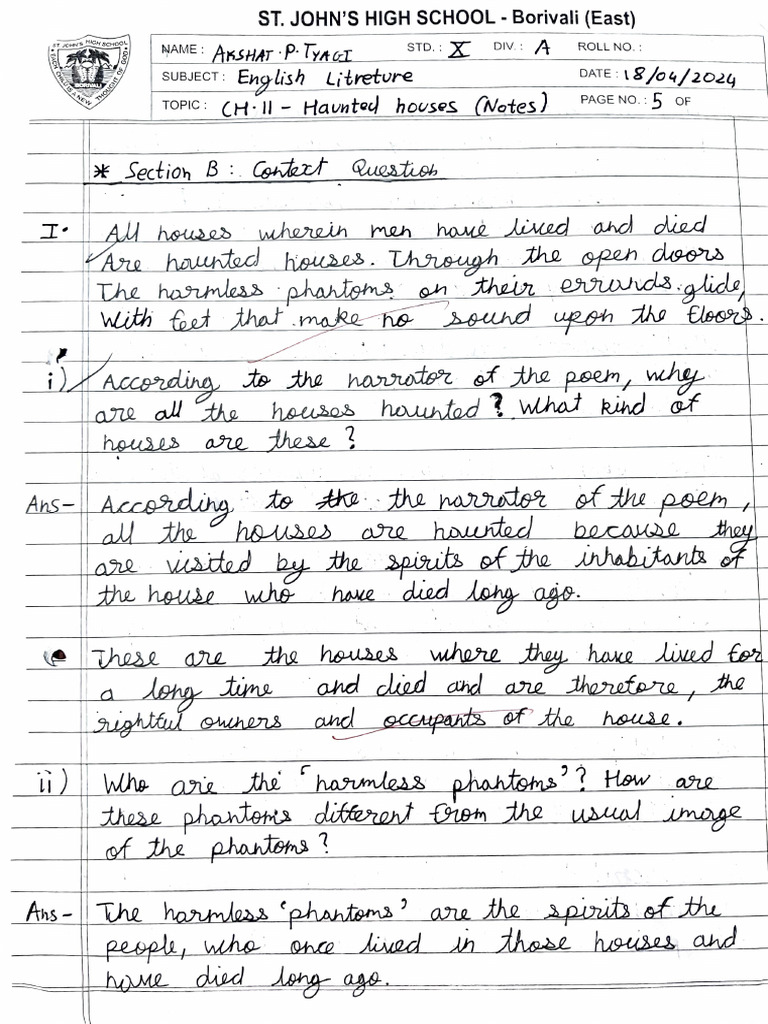 ST. JOHN'S HIGH SCHOOL - Borivali (East)
NAME : AKSHAT . P. TYAGI STD. : X DIV. : A ROLL NO. :
SUBJECT : English Litreture DATE : 18/04/2024
TOPIC : CH. 11 - Haunted houses (Notes) PAGE NO. : 5 OF
* Section B : Context Question
I. All houses wherein men have lived and died
Are haunted houses. Through the open doors
The harmless phantoms on their errands glide,
With feet that make no sound upon the floors.
i) According to the narrator of the poem, why
are all the houses haunted? What kind of
houses are these?
Ans- According to the the narrator of the poem,
all the houses are haunted because they
are visited by the spirits of the inhabitants of
the house who have died long ago.
These are the houses where they have lived for
a long time and died and are therefore, the
rightful owners and occupants of the house.
ii) Who are the 'harmless phantoms'? How are
these phantoms different from the usual image
of the phantoms?
Ans- The harmless 'phantoms' are the spirits of the
people, who once lived in those houses and
have died long ago.